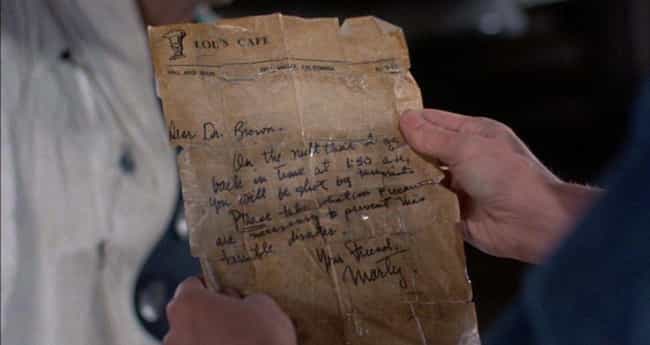 LOU'S CAFE
HILL VALLEY, CALIFORNIA
Dear Dr. Brown,
On the night that I go
back in time at 1:30 a.m.
you will be shot by
Please take whatever
are necessary to prevent this
terrible disaster.
Your Friend,
Marty.